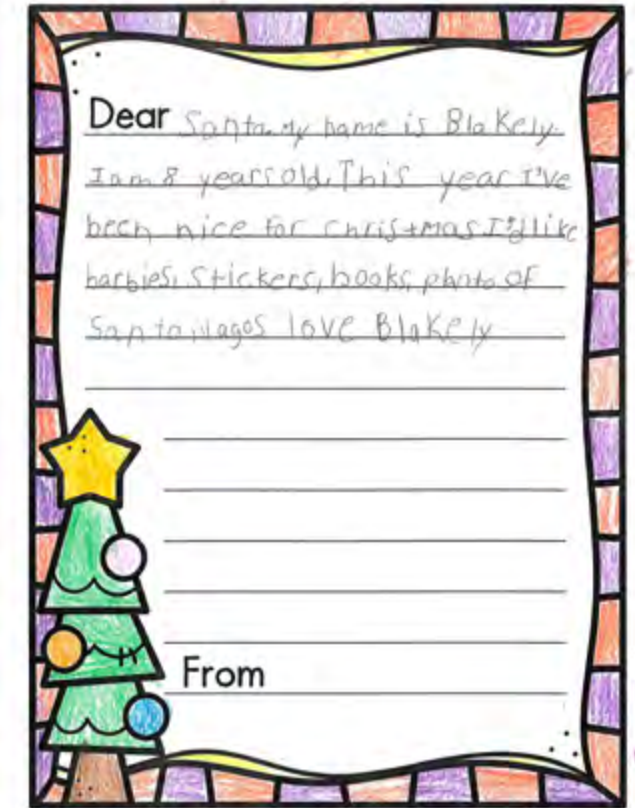 Dear Santa. My name is Blakely.
I am 8 years old. This year I've
been nice for christmas I'd like
barbies, stickers, books, photo of
Santa, lagos love Blakely
From